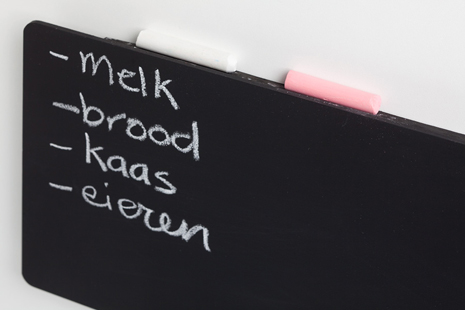 - melk
- brood
- kaas
- eieren